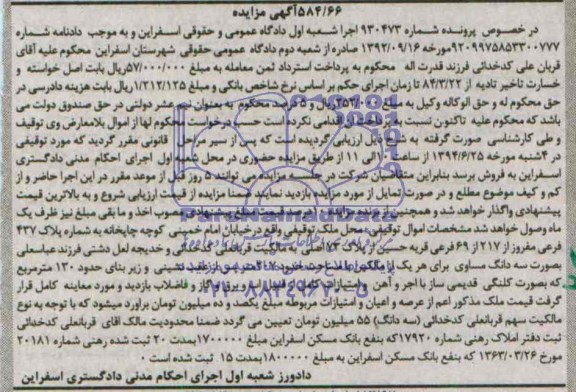 ۵۸۴/۶۶آگهی مزایده
در خصوص پرونده شماره ۹۳۰۴۷۳ اجرا شعبه اول دادگاه عمومی و حقوقی اسفراین و به موجب دادنامه شماره
۹۲۰۹۹۷۵۸۵۳۳۰۰۷۷۷مورخه ۱۳۹۲/۰۹/۱۶ صادره از شعبه دوم دادگاه عمومی حقوقی شهرستان اسفراین محکوم علیه آقای
قربان علی کدخدائی فرزند قدرت اله محکوم به پرداخت استرداد ثمن معامله به مبلغ ۵۷/۰۰۰/۰۰۰ریال بابت اصل خواسته و
خسارت تاخیر تادیه از ۸۴/۳/۲۲ تا زمان اجرای حکم بر اساس نرخ شاخص بانکی و مبلغ ۱/۲۱۲/۱۲۵ریال بابت هزینه دادرسی در
حق محکوم له و حق الوکاله وکیل به مبلغ ریال و ۵ درصد محکوم به عنوان نیم عشر دولتی در حق صندوق دولت می
باشد که محکوم علیه تاکنون نسبت به پرداخت اقدامی نکرده است حسب درخواست محکوم لها از اموال بلامعارض وی توقیف
و طی کارشناسی صورت گرفته به شرح ذیل ارزیابی گردیده است که پس از سیر مراحل قانونی مقرر گردید که مورد توقیفی
در ۴شنبه مورخه ۱۳۹۴/۶/۲۵ از ساعت ۱۰الی ۱۱ از طریق مزایده حضوری در محل شعبه اول اجرای احکام مدنی دادگستری
اسفراین به فروش برسد بنابراین متقاضیان شرکت در جلسه مزایده می توانند ۵ روز قبل از موعد مقرر در این اجرا حاضر و از
کم و کیف موضوع مطلع و در صورت تمایل از مورد مزایده بازدید نمایند ضمنا مزایده از قیمت ارزیابی شروع و به بالاترین قیمت
پیشنهادی واگذار خواهد شد و همچنین از برنده مزایده درصد قیمت مبلغ پیشنهادی مصوب اخذ و ما بقی مبلغ نیز ظرف یک
ماه وصول خواهد شد مشخصات اموال توقیفی: محل ملک توقیفی واقع در خیابان امام خمینی کوچه چاپخانه به شماره پلاک ۴۳۷
فرعی مفروز از ۲۱۷ از ۶۹فرعی قریه حسین از پلاک اصلی به مالکیت قربانعلی کدخدائی و خدیجه لعل دشتی فرزند عباسعلی
بصورت سه دانگ مساوی برای هر یک از مالکین به مساحت حدود متر و زیر بنای حدود ۱۳۰ مترمربع
که بصورت کلنگی قدیمی ساز با آجر و آهن و امتیازات کامل از قبیل آب و برق و گاز و فاضلاب بازدید و مورد معاینه کامل قرار
گرفت قیمت ملک مذکور اعم از عرصه و اعیان و امتیازات مربوطه مبلغ یکصد و ده میلیون تومان برآورد میشود که با توجه به نوع
مالکیت سهم قربانعلی کدخدائی (سه دانگ) ۵۵ میلیون تومان تعیین می گردد ضمنا محدودیت مالک آقای قربانعلی کدخدائی
ثبت دفتر املاک رهنی شماره ۱۷۹۲۰که بنفع بانک مسکن اسفراین مبلغ ۱۷۰۰۰۰۰بمدت ۲۰ ثبت شده رهنی شماره ۲۰۱۸۱
مورخ ۱۳۶۳/۰۳/۲۶ که بنفع بانک مسکن اسفراین به مبلغ ۱۸۰۰۰۰۰بمدت ۱۵ ثبت شده است ۰
دادورز شعبه اول اجرای احکام مدنی دادگستری اسفراین